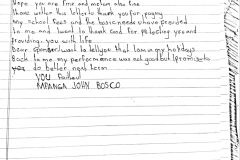 Hope you are fine and me Iam also fine
I have written this letter to thank you for paying
my school fees and the basic needs u have provided
to me and I want to thank God for protecting you and
providing you with life
Dear sponser I want to tell you that Iam in my holidays
Back to me my performance was not good but I promise to
you do better next term
YOU
MPANGA JOHN BOSCO